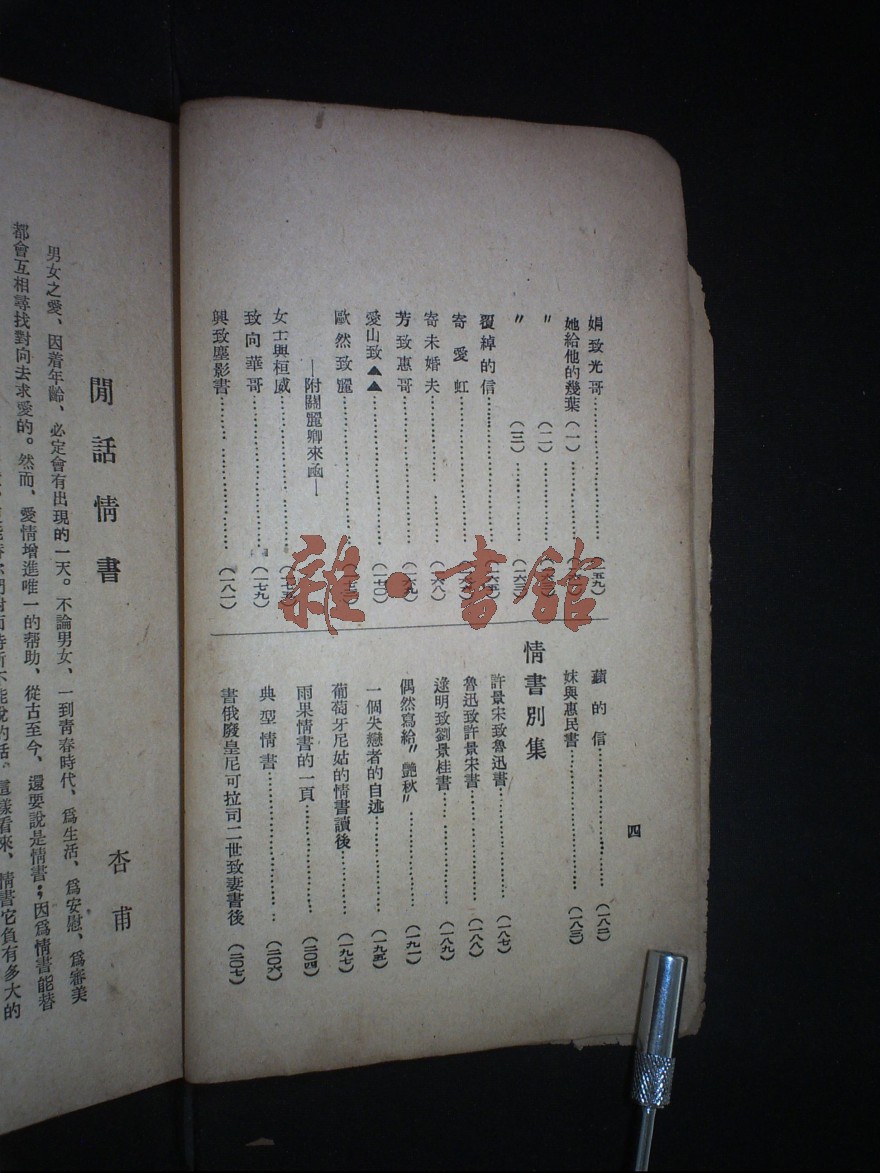 四
娟致光哥……………………(一五九)
她給他的幾葉(一)……………
〃(二)……………
〃(三)……………(一六三)
覆綽的信……………………(一六五)
寄愛虹……………………
寄未婚夫……………………(一六八)
芳致惠哥……………………(一六九)
愛山致▲▲……………………(一七〇)
歐然致麗……………………
—附關麗卿來函—
女士與桓威……………………(一七五)
致向華哥……………………(一七九)
興致塵影書……………………(一八一)
蘋的信……………………(一八二)
妹與惠民書……………………(一八三)
情書別集
許景宋致魯迅書……………(一八七)
魯迅致許景宋書……………(一八八)
逯明致劉景桂書……………(一八九)
偶然寫給〃艷秋〃……………(一九一)
一個失戀者的自述……………(一九五)
葡萄牙尼姑的情書讀後………(一九七)
雨果情書的一頁……………(二〇四)
典型情書……………………(二〇六)
書俄廢皇尼可拉司二世致妻書後(二〇七)
閒話情書
杏甫
男女之愛、因着年齡、必定會有出現的一天。不論男女、一到青春時代、爲生活、爲安慰、爲審美
都會互相尋找對向去求愛的。然而、愛情增進唯一的帮助、從古至今、還要說是情書;因爲情書能替
們對面時所不能說的話、這樣看來、情書它負有多大的
雜·書館